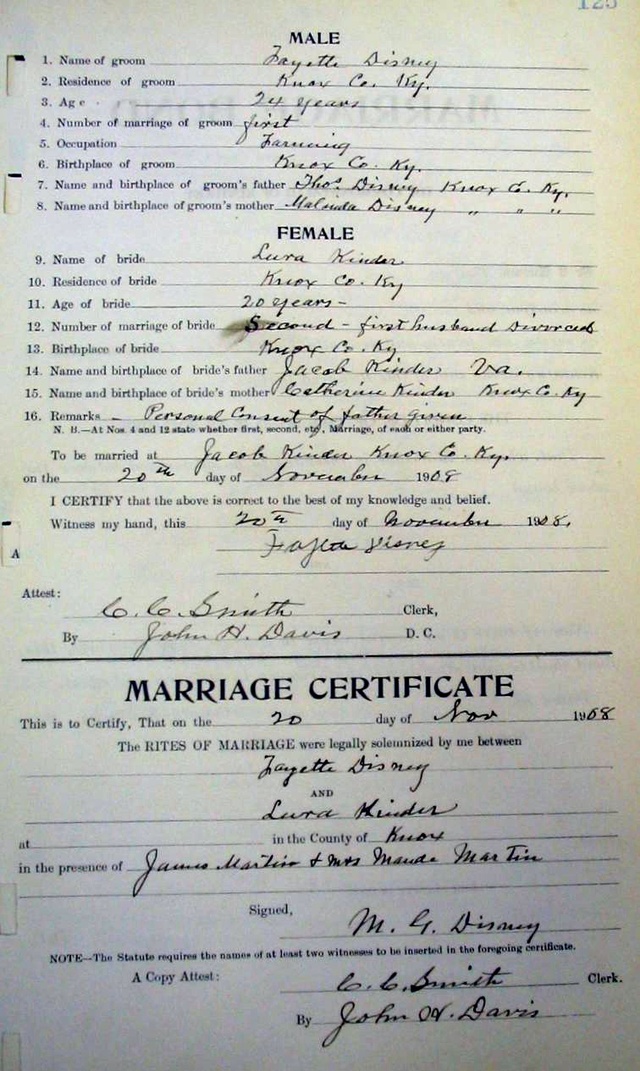 125
MALE
1. Name of groom Fayette Disney
2. Residence of groom Knox Co. Ky.
3. Age 24 years
4. Number of marriage of groom first
5. Occupation Farming
6. Birthplace of groom Knox Co. Ky.
7. Name and birthplace of groom's father Thos. Disney Knox Co. Ky.
8. Name and birthplace of groom's mother Malinda Disney " " "
FEMALE
9. Name of bride Lura Kinder
10. Residence of bride Knox Co. Ky
11. Age of bride 20 years –
12. Number of marriage of bride Second – first husband Divorced
13. Birthplace of bride Knox Co. Ky
14. Name and birthplace of bride's father Jacob Kinder Va.
15. Name and birthplace of bride's mother Catherine Kinder Knox Co. Ky
16. Remarks – Personal Consent of father given
N. B.—At Nos. 4 and 12 state whether first, second, etc, Marriage, of each or either party.
To be married at Jacob Kinder Knox Co. Ky.
on the 20th day of November 1908
I CERTIFY that the above is correct to the best of my knowledge and belief.
Witness my hand, this 20th day of November 1908.
Fayette Disney
A
Attest:
C. C. Smith Clerk,
By John H. Davis D. C.
MARRIAGE CERTIFICATE
This is to Certify, That on the 20 day of Nov 1908
The RITES OF MARRIAGE were legally solemnized by me between
Fayette Disney
AND
Lura Kinder
at in the County of Knox
in the presence of James Martin & Mrs Maude Martin
Signed,
M. G. Disney
NOTE—The Statute requires the names of at least two witnesses to be inserted in the foregoing certificate.
A Copy Attest: C. C. Smith Clerk.
By John H. Davis